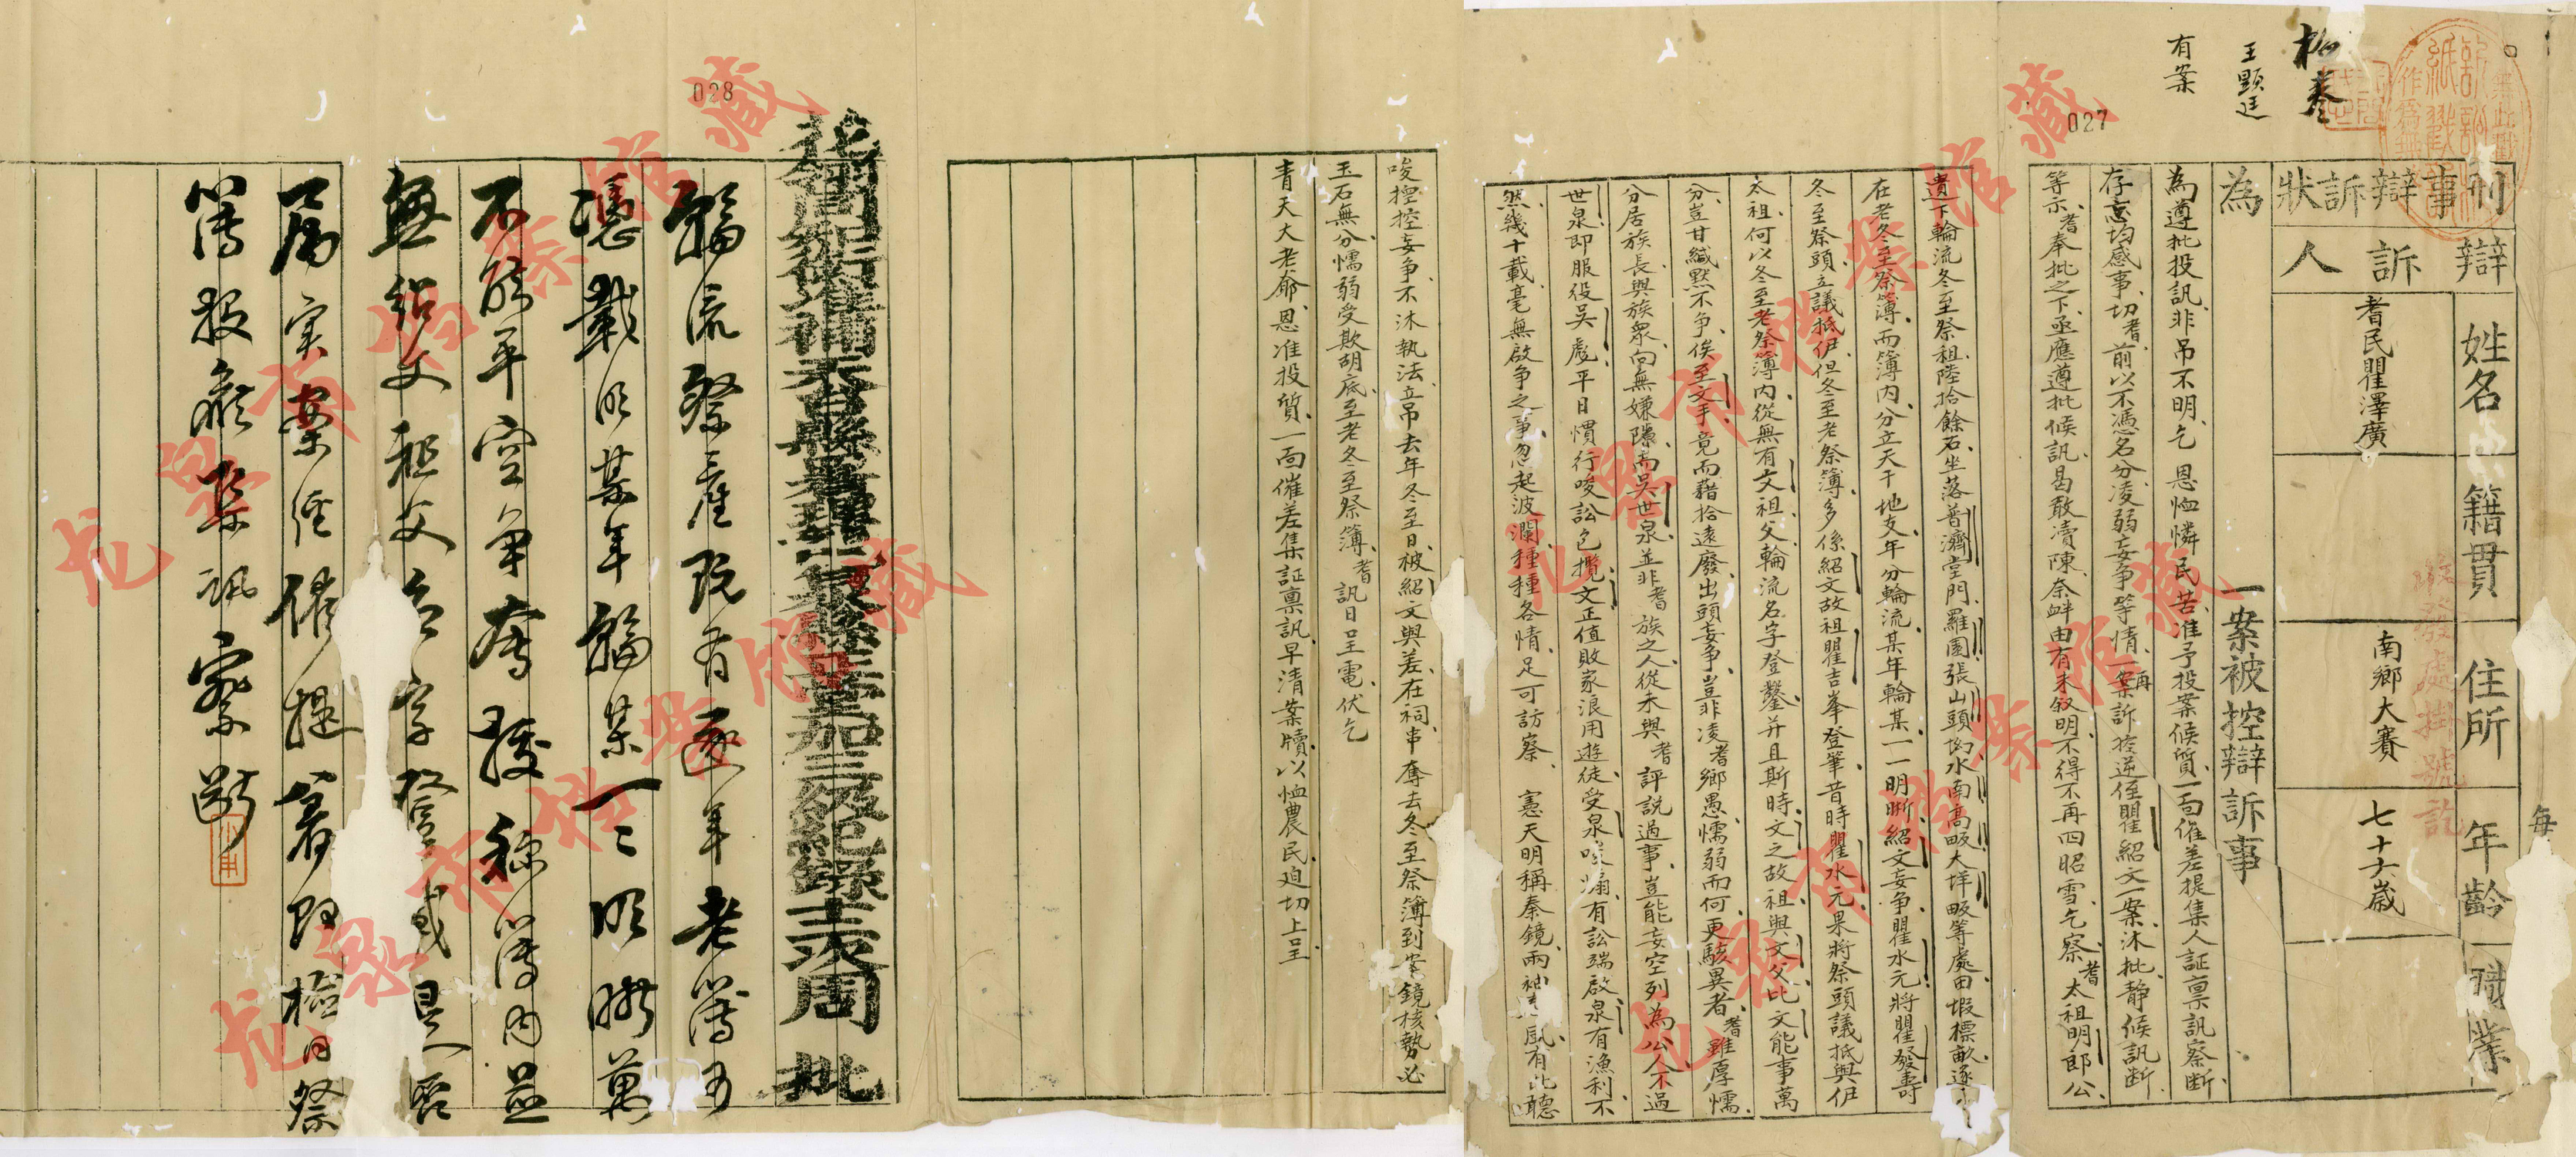 刑事辯訴狀
為
辯訴人
姓名 籍貫 住所 年齡 職業
耆民瞿澤廣
南鄉大賽
七十六歲
一案被控辯訴事
王顯廷
有案
027
為遵批投訊、非吊不明、乞 恩恤憐民苦、准予投案候質、一面催差提集人証稟訊察断
存忘均感事、切耆前以不憑名分、凌弱妄爭等情、一案訴控逆侄瞿紹文一案、沐批、靜候訊断
等示、耆奉批之下、亟應遵批候訊、曷敢瀆陳、奈衅由有未叙明、不得不再四昭雪、乞察、耆太祖明郎公
遺下輪流冬至祭祖、陸拾餘石、坐落普濟堂門、羅園、張山頭、坳水南、高畈、大垟畈等處、田塅標畝逐
在老冬至祭簿、而簿内、分立天干地支、年分輪流、某年輪某、一一明晰、紹文妄爭、瞿水元將瞿發壽
冬至祭頭、立議抵伊、但冬至老祭簿、多係紹文故祖瞿吉峯登筆、昔時瞿水元果將祭頭議抵與伊
太祖、何以冬至老祭簿内、從無有文祖父輪流名字登鏨、并且斯時、文之故祖、與文父、比文能事萬
分、豈甘緘默不爭、俟至文手、竟而藉拾遠廢、出頭妄爭、豈非凌耆鄉愚懦弱而何、更駭異者、耆雖厚懦、
分居族長、與族衆、向無嫌隙、而吳世泉、並非耆族之人、從未與耆評説過事、豈能妄空列為公人、不過
世泉即服役吳彪、平日慣行唆訟包攬、文正值敗家浪用遊徒、受泉唆煽、有訟端啟、泉有漁利、不
然幾十載毫無啟爭之事、忽起波瀾、種種各情、足可訪察 憲天明稱秦鏡、兩袖風、有此聽
唆控控妄爭、不沐執法、立吊去年冬至日、被紹文與差、在祠串奪去冬至祭簿到案、鏡核、勢必
玉石無分、懦弱受欺胡底、至老冬至祭簿、耆 訊日呈電、伏乞
青天大老爺、恩准投質、一面催差集証稟訊、早清案牘、以恤農民、迫切上呈
028
輪流祭產既有逐年老簿可
憑載明某年輪某一一明晰萬
不能平空爭奪核稱簿内並
無紹文祖父名字登載是否
屬實案經催提著即檢同祭
簿投候集訊察斷